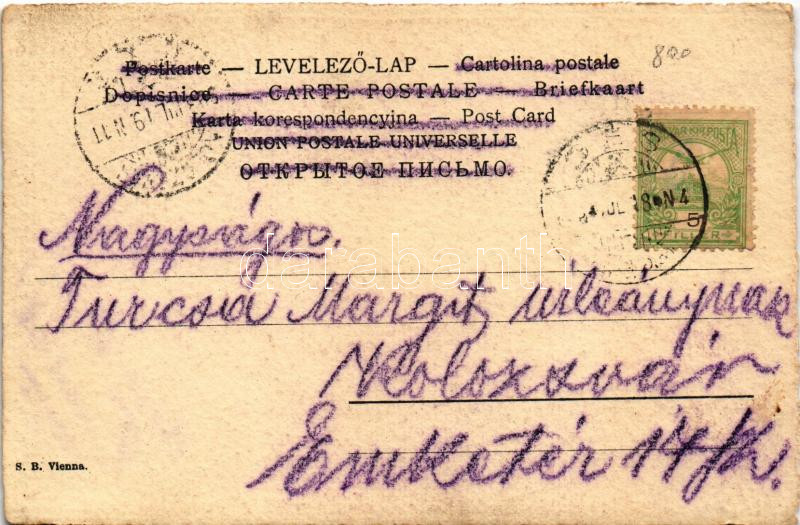 800
Postkarte — LEVELEZŐ-LAP — Cartolina postale
Dopisnice — CARTE POSTALE — Briefkaart
Karta korespondencyjna — Post Card
UNION POSTALE UNIVERSELLE
ОТКРЫТОЕ ПИСЬМО.
MAGYAR KIR. POSTA
5
FILLÉR
Nagyságos
darabanth
Turcsa Margit úrleánynak
Kolozsvár
Emketér 14 sz.
S. B. Vienna.